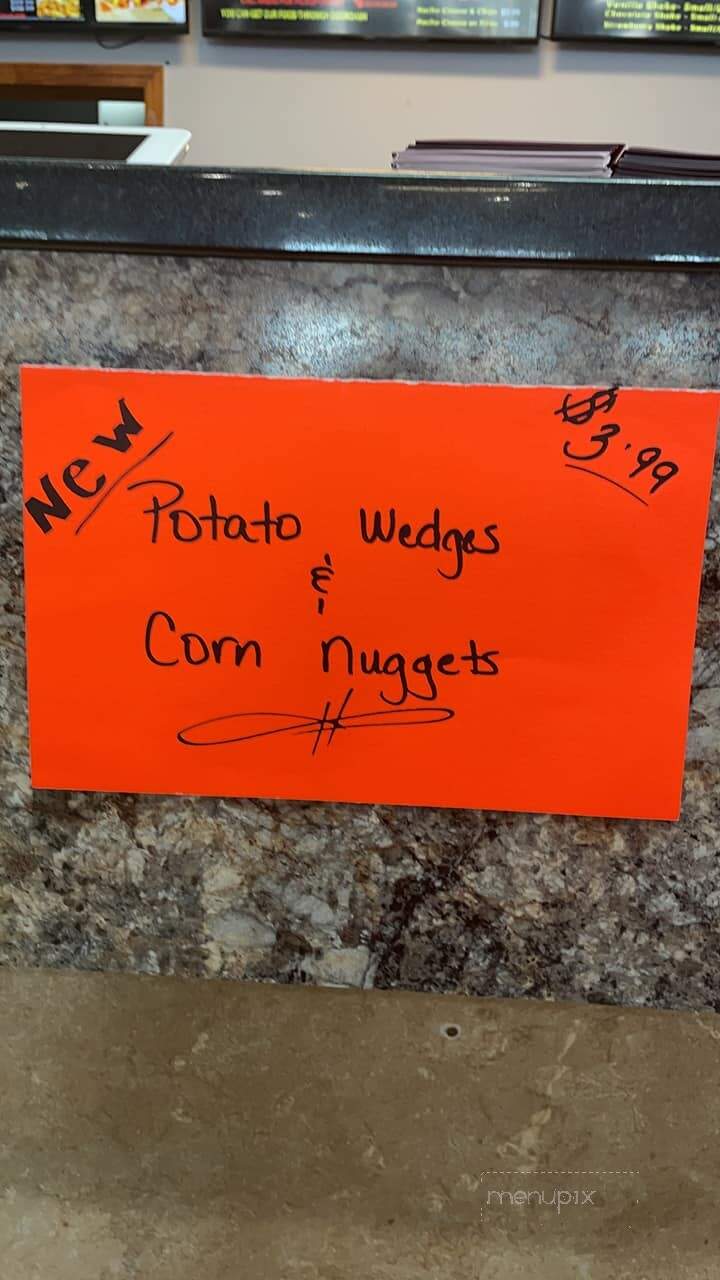 YOU CAN GET OUR FOOD THROUGH DOORDASH
Nacho Cheese & Chips
Nacho Cheese on Fries
Vanilla Shake - Small
Chocolate Shake - Small
Strawberry Shake - Small
New
$
3.99
Potato Wedges
&
Corn nuggets
menupix